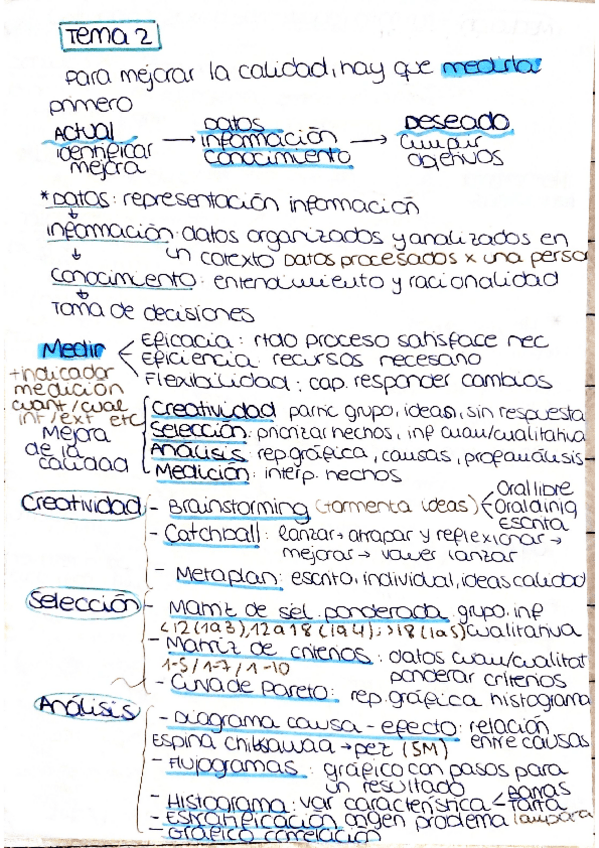 Tema 2
para mejorar la calidad, hay que medirla
primero
ACTUAL → DATOS → DESEADO
identificar información cumplir
mejora conocimiento objetivos
*DATOS: representación información
↓
información: datos organizados y analizados en
↓ un cotexto DATOS procesados x una perso
conocimiento: entendimiento y racionalidad
↓
Toma de decisiones
Medir
Eficacia: rtdo proceso satisface nec
Eficiencia: recursos necesario
Flexibilidad: cap. responder cambios
+indicador
medición
cuant/cual
int/ext etc
Mejora
de la
calidad
Creatividad partic grupo, ideas, sin respuesta
Selección: priorizar hechos, inf cuan/cualitativa
Análisis: rep gráfica, causas, prof análisis
Medición: interp. hechos
Creatividad
- Brainstorming (tormenta ideas)
Oral libre
Oral dirig
escrita
- Catchball: lanzar → atrapar y reflexionar →
mejorar → volver lanzar
- Metaplan: escrito, individual, ideas calidad
Selección
- Matriz de sel. ponderada grupo, inf
<12 (1a3), 12a18 (1a4), >18 (1a5) cualitativa
- Matriz de criterios: datos cuan/cualitat
1-5 / 1-7 / 1-10 ponderar criterios
- Curva de pareto: rep. gráfica histograma
Análisis
- Diagrama causa-efecto: relación
Espina → pez (5M) entre causas
- Flujogramas: gráfico con pasos para
un resultado
- Histograma: var característica < barras
tarta
- Estratificación origen problema lampara
- Gráfico correlación